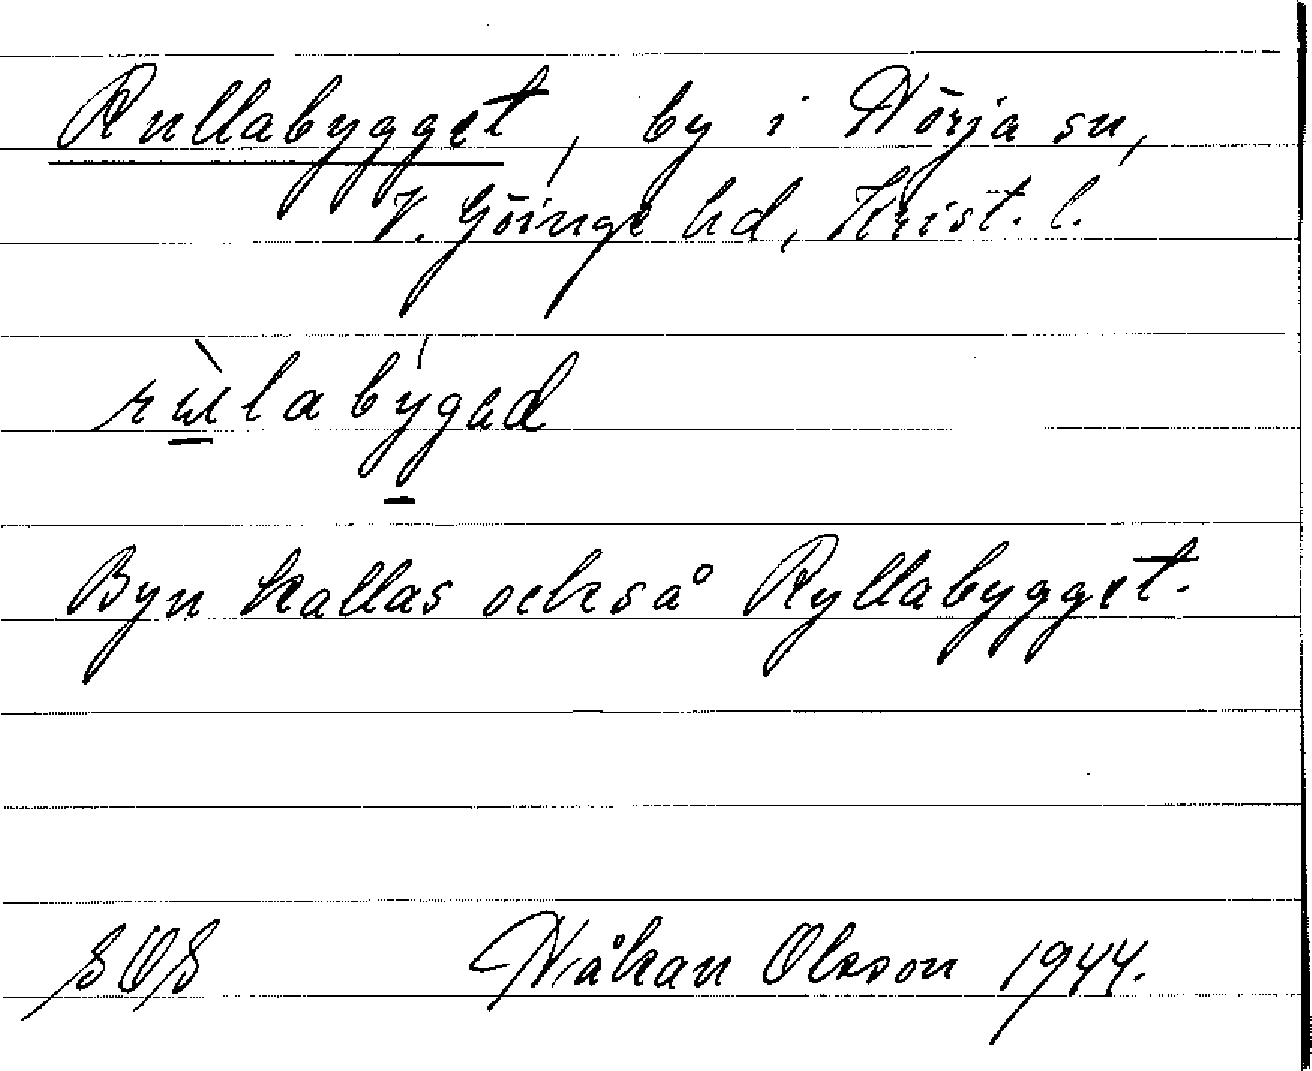 Rullabygget, by i Hörja sn,
V. Göinge hd, Krist. l.
rùlabýgad
Byn kallas också Ryllabygget.
SOS Håkan Olsson 1944.